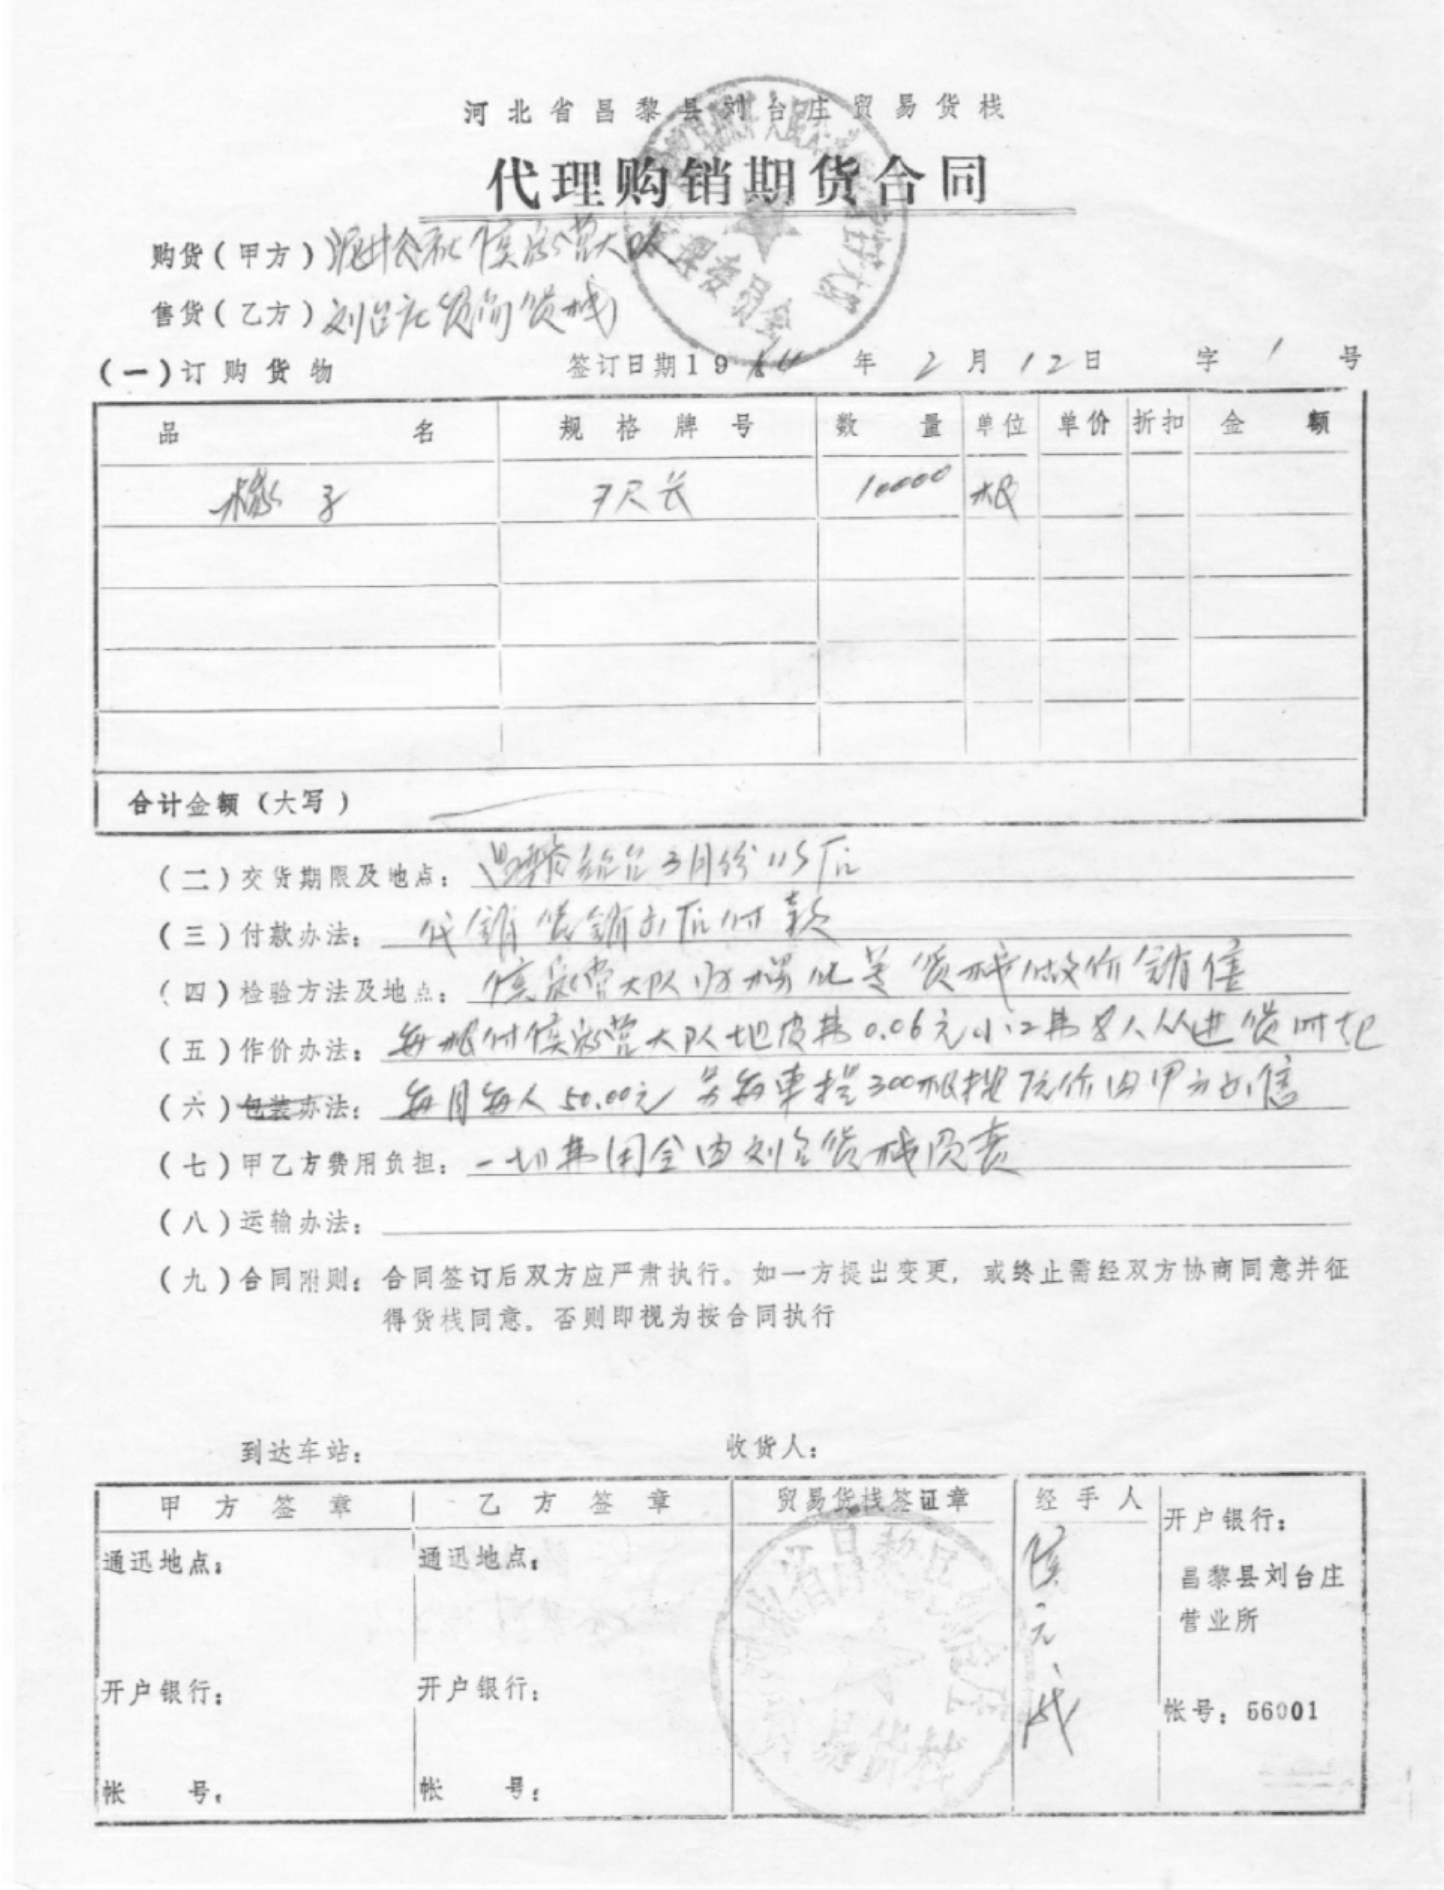 河北省昌黎县刘台庄贸易货栈
代理购销期货合同
购货(甲方)泥井公社侯家营大队
售货(乙方)刘台庄贸易货栈
(一)订购货物 签订日期19 年2月12日 字1号
品名 规格牌号 数量 单位 单价 折扣 金额
子 尺长 10000 根
合计金额(大写)
(二)交货期限及地点: 3月份
(三)付款办法:代销货销出后付款
(四)检验方法及地点:侯家营大队 货栈做价销售
(五)作价办法:每根付侯家营大队地皮费0.06元 人从进货时起
(六)包装办法:每月每人50.00元 另每车提300根按 价由甲方出售
(七)甲乙方费用负担:一切费用全由刘台货栈负责
(八)运输办法:
(九)合同附则:合同签订后双方应严肃执行。如一方提出变更,或终止需经双方协商同意并征
得货栈同意。否则即视为按合同执行
到达车站: 收货人:
甲方签章 乙方签章 贸易货栈签证章 经手人
侯元成
开户银行:
昌黎县刘台庄
营业所
帐号:56001
通迅地点: 通迅地点:
开户银行: 开户银行:
帐号: 帐号:
河北省昌黎县刘台庄
贸易货栈
管理委员会